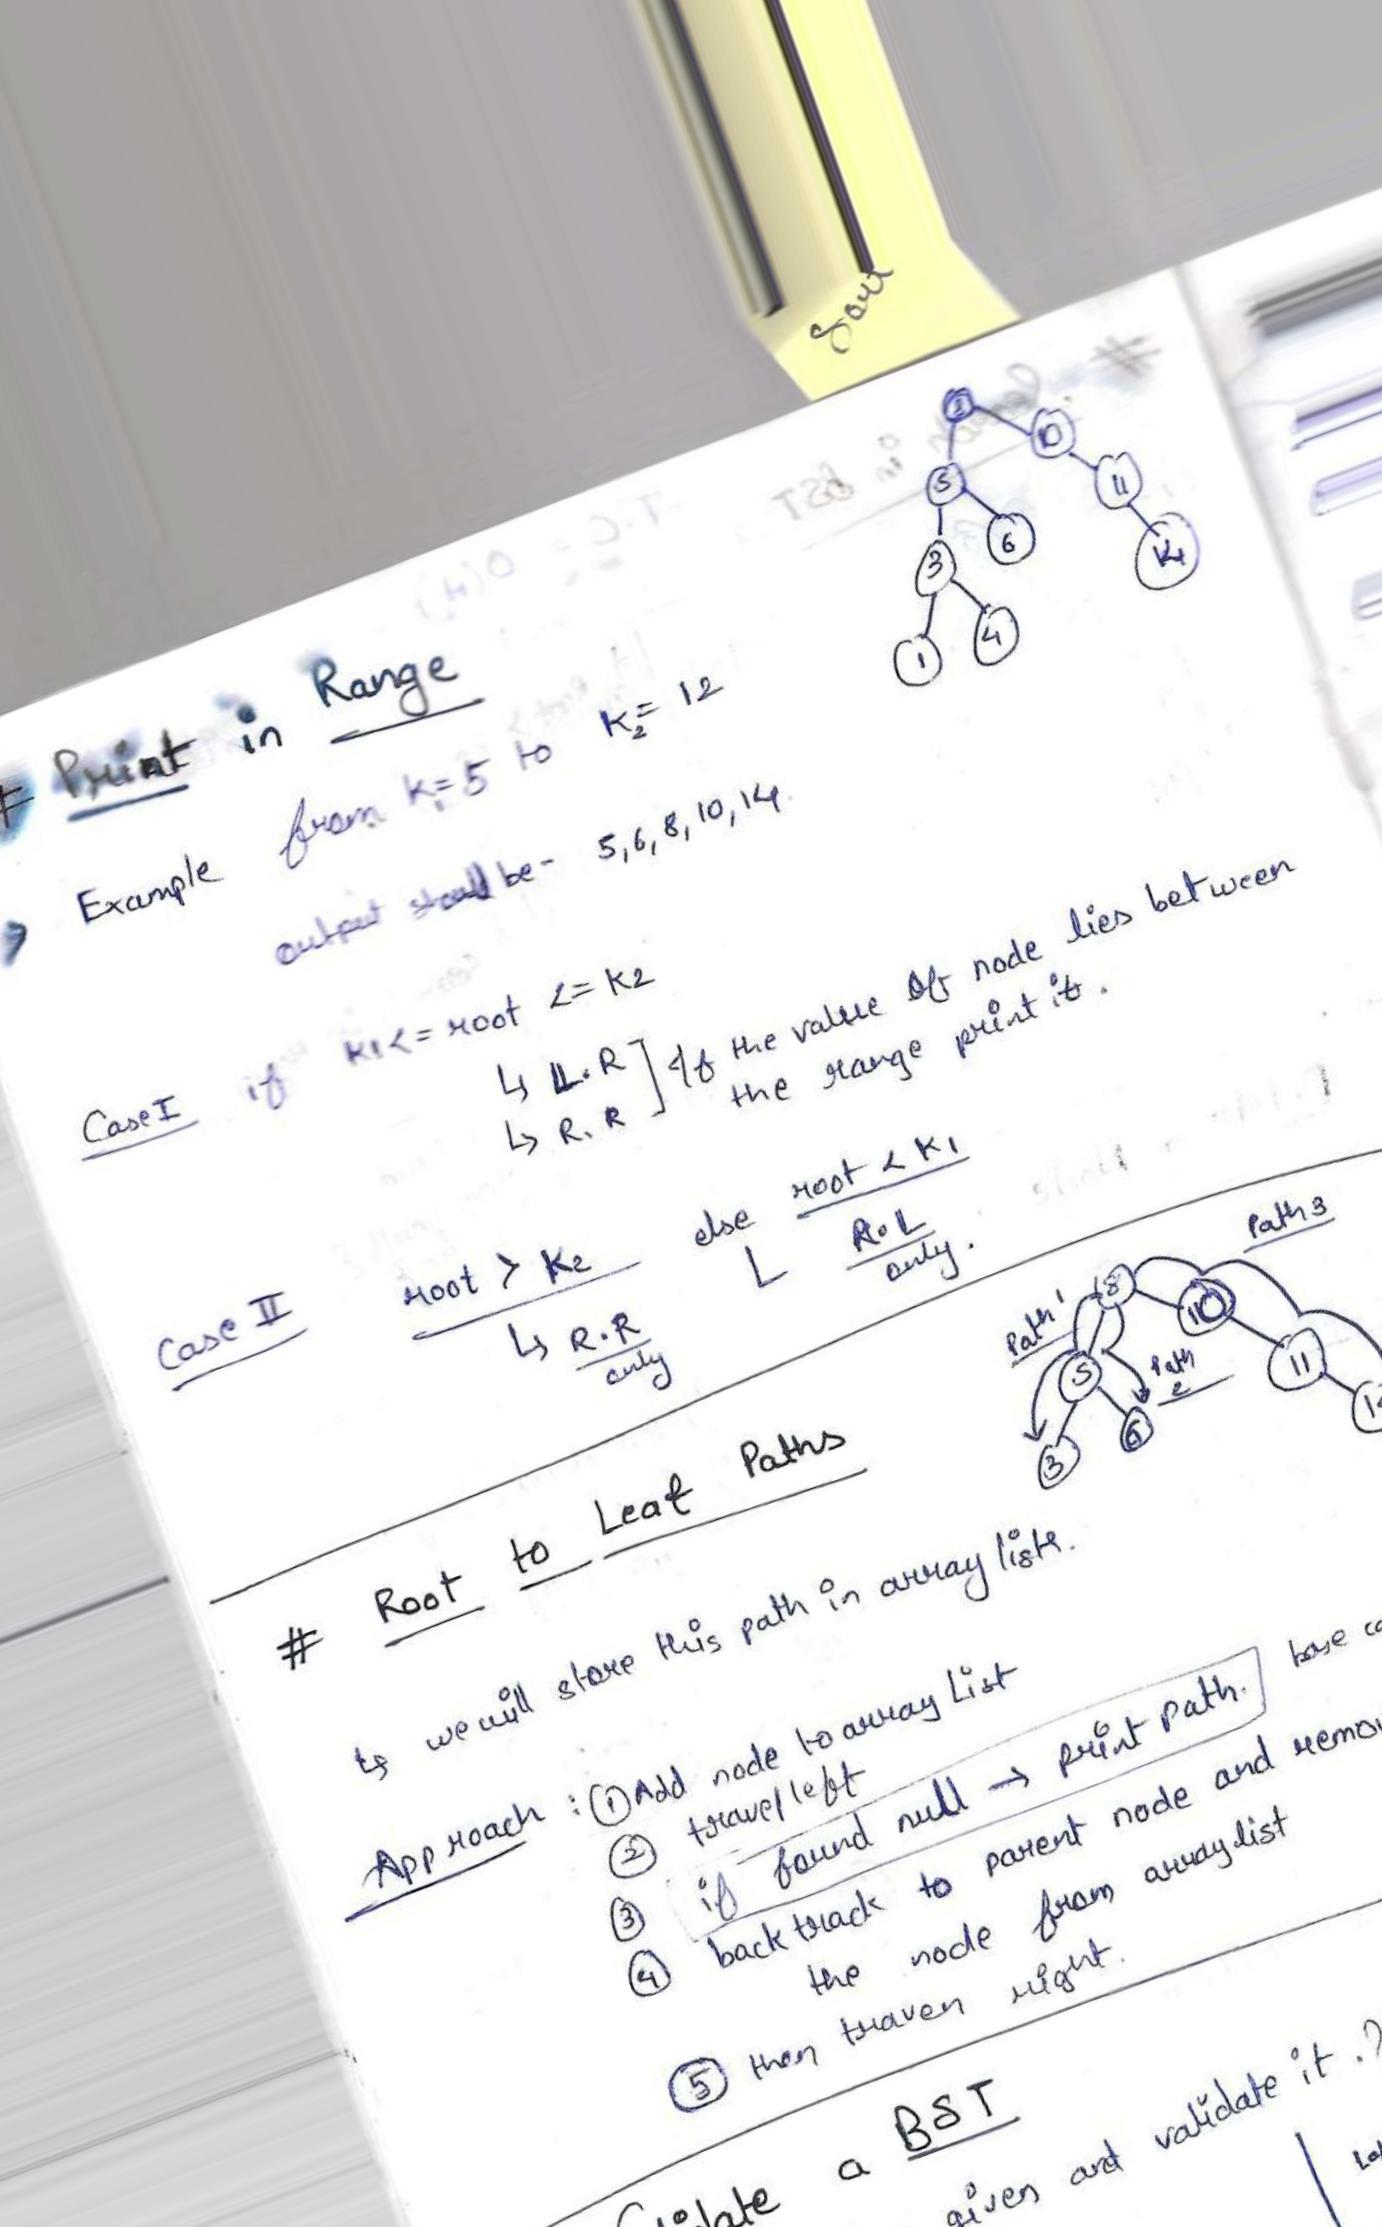 8
10
5
11
6
3
14
1
4
# Print in Range
Example from K1=5 to K2= 12
output should be - 5,6,8,10,14.
Case I if K1<= root <= K2
↳ L.R ] If the value of node lies between
↳ R.R the range print it.
Case II root > K2 else root < K1
↳ R.R only L R.L only.
Path 1
Path 2
Path 3
8
10
5
11
3
6
# Root to Leaf Paths
↳ we will store this path in array list.
Approach : ① Add node to array List
② travel left
③ if found null → print path. base
④ back track to parent node and
the node from arraylist
⑤ then traven right.
a BST
given and validate it.?